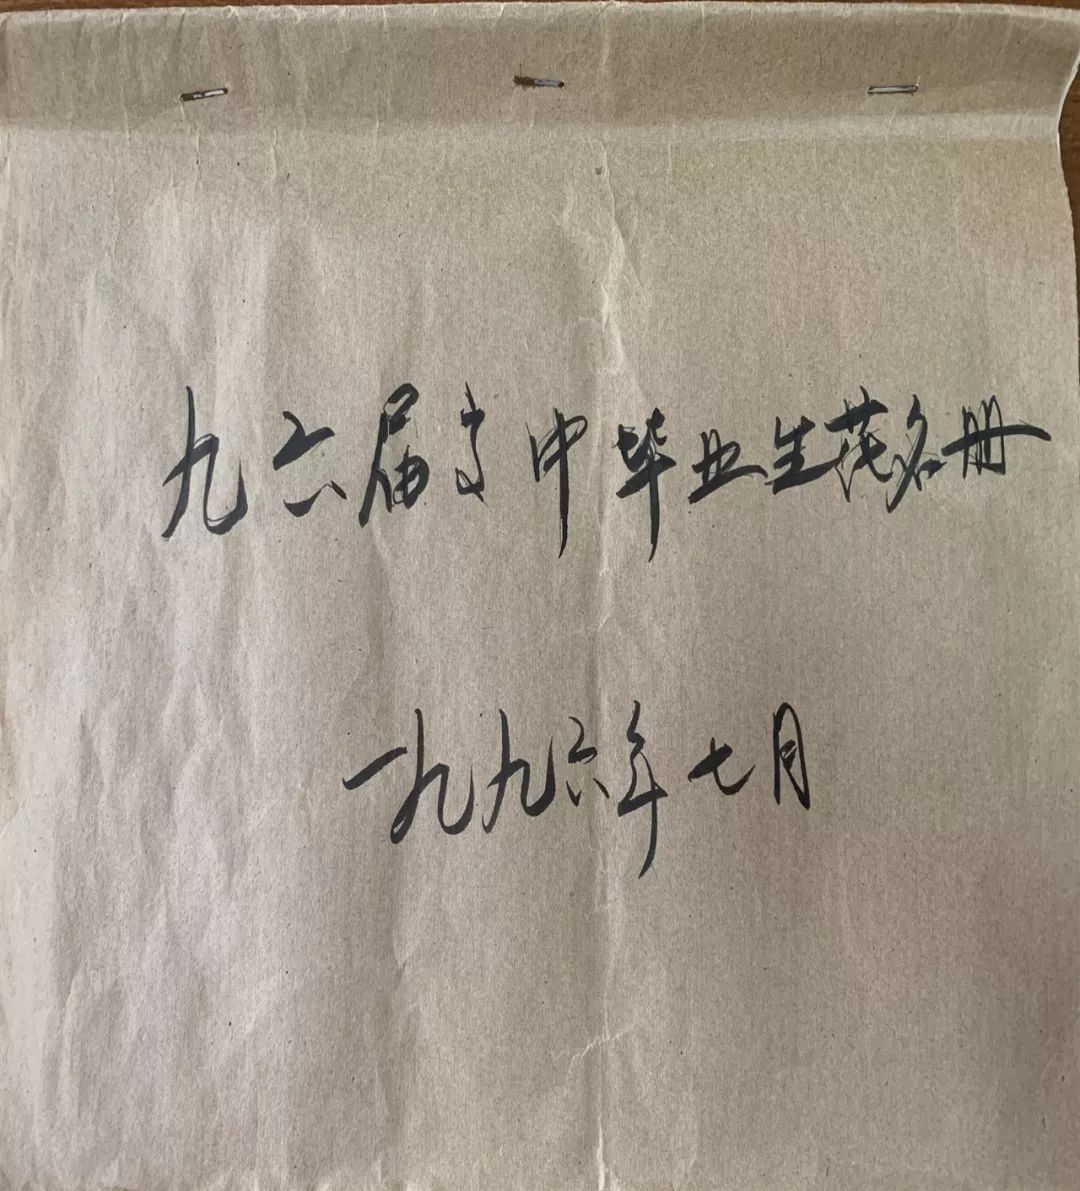 九六届高中毕业生花名册
一九九六年七月